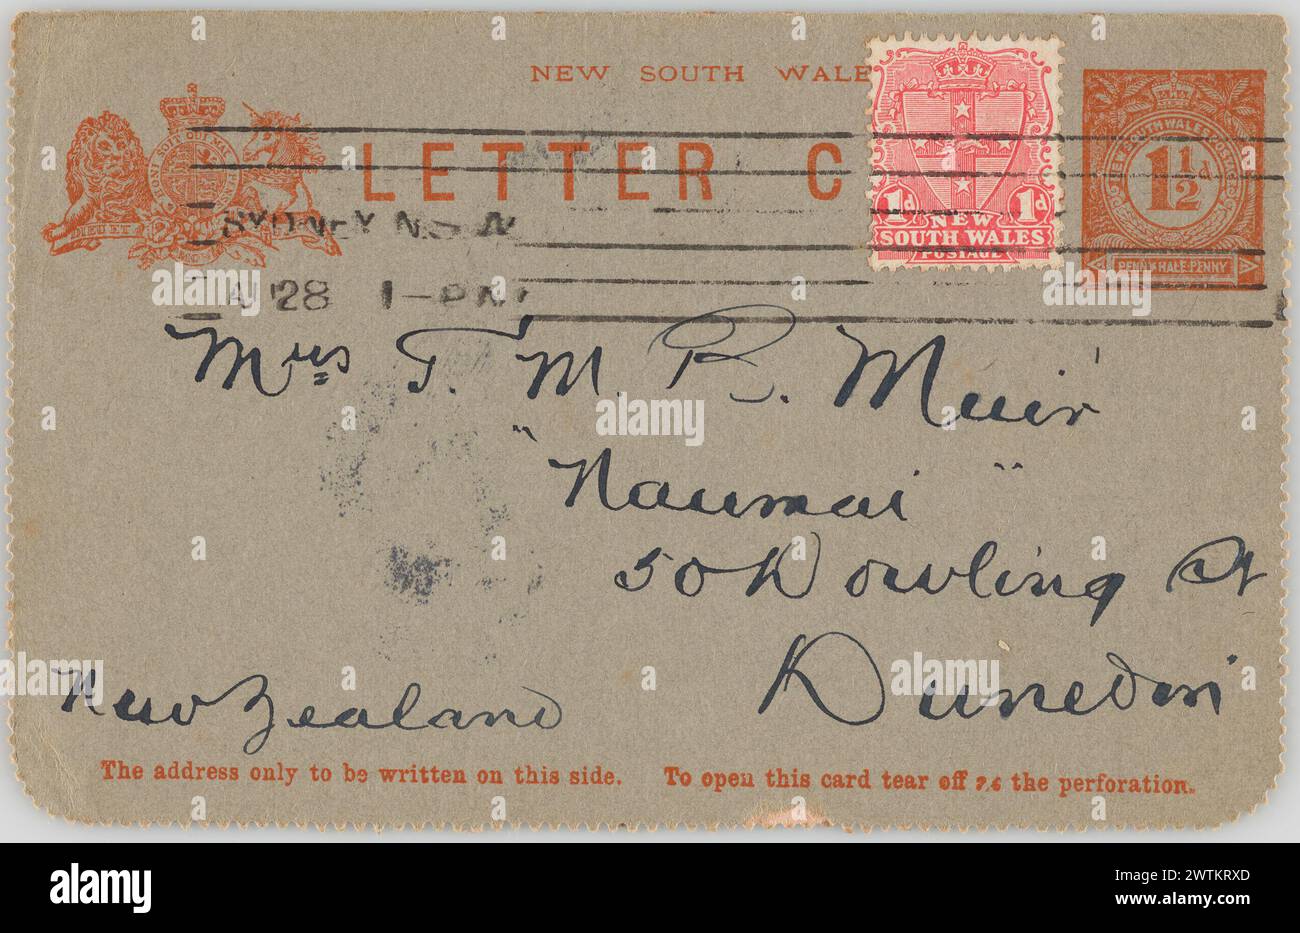 NEW SOUTH WALE
LETTER C
DIEU ET MON
NEW SOUTH WALES POSTAGE
1½d
PENNY HALF-PENNY
1d 1d
NEW
SOUTH WALES
POSTAGE
SYDNEY N.S.W
28 1-PM
Mrs T. M. R. Muir
"Naumai"
50 Dowling St
Dunedin
New Zealand
The address only to be written on this side. To open this card tear off at the perforation.
alamy
Image ID: 2WTKRXD
www.alamy.com